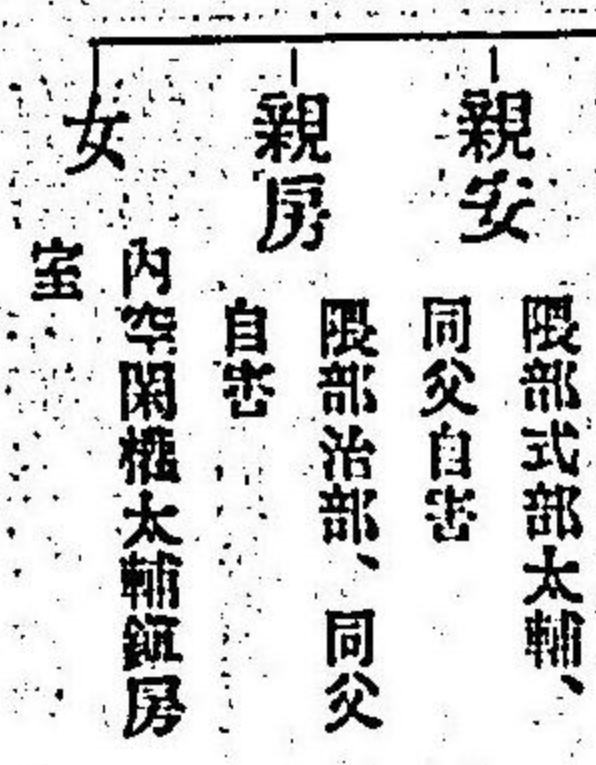 親安
隈部式部太輔、
同父自害
親房
隈部治部、同父
自害
女
内空閑権太輔鎮房
室